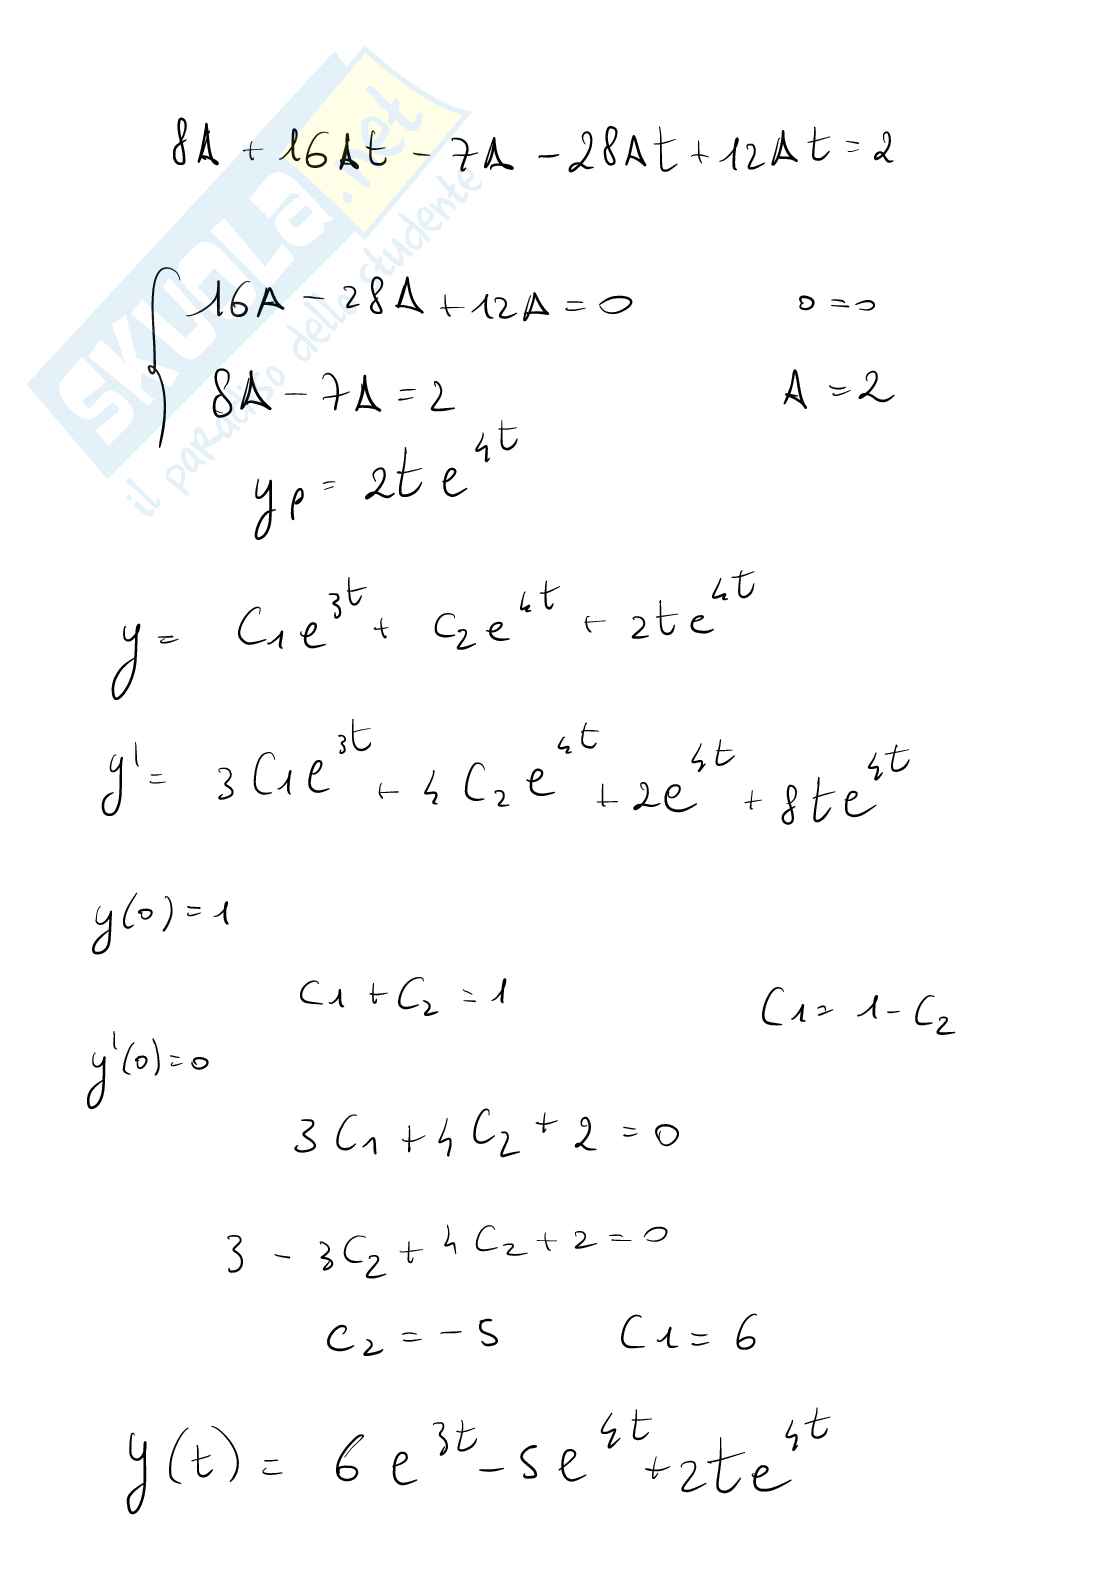 SKUOLA.net
il paradiso dello studente
8A + 16At - 7A - 28At + 12At = 2
16A - 28A + 12A = 0 0 = 0
8A - 7A = 2 A = 2
yp = 2t e^4t
y = C1 e^3t + C2 e^4t + 2t e^4t
y' = 3 C1 e^3t + 4 C2 e^4t + 2e^4t + 8t e^4t
y(0) = 1
C1 + C2 = 1 C1 = 1 - C2
y'(0) = 0
3 C1 + 4 C2 + 2 = 0
3 - 3C2 + 4C2 + 2 = 0
C2 = -5 C1 = 6
y(t) = 6 e^3t - 5e^4t + 2t e^4t